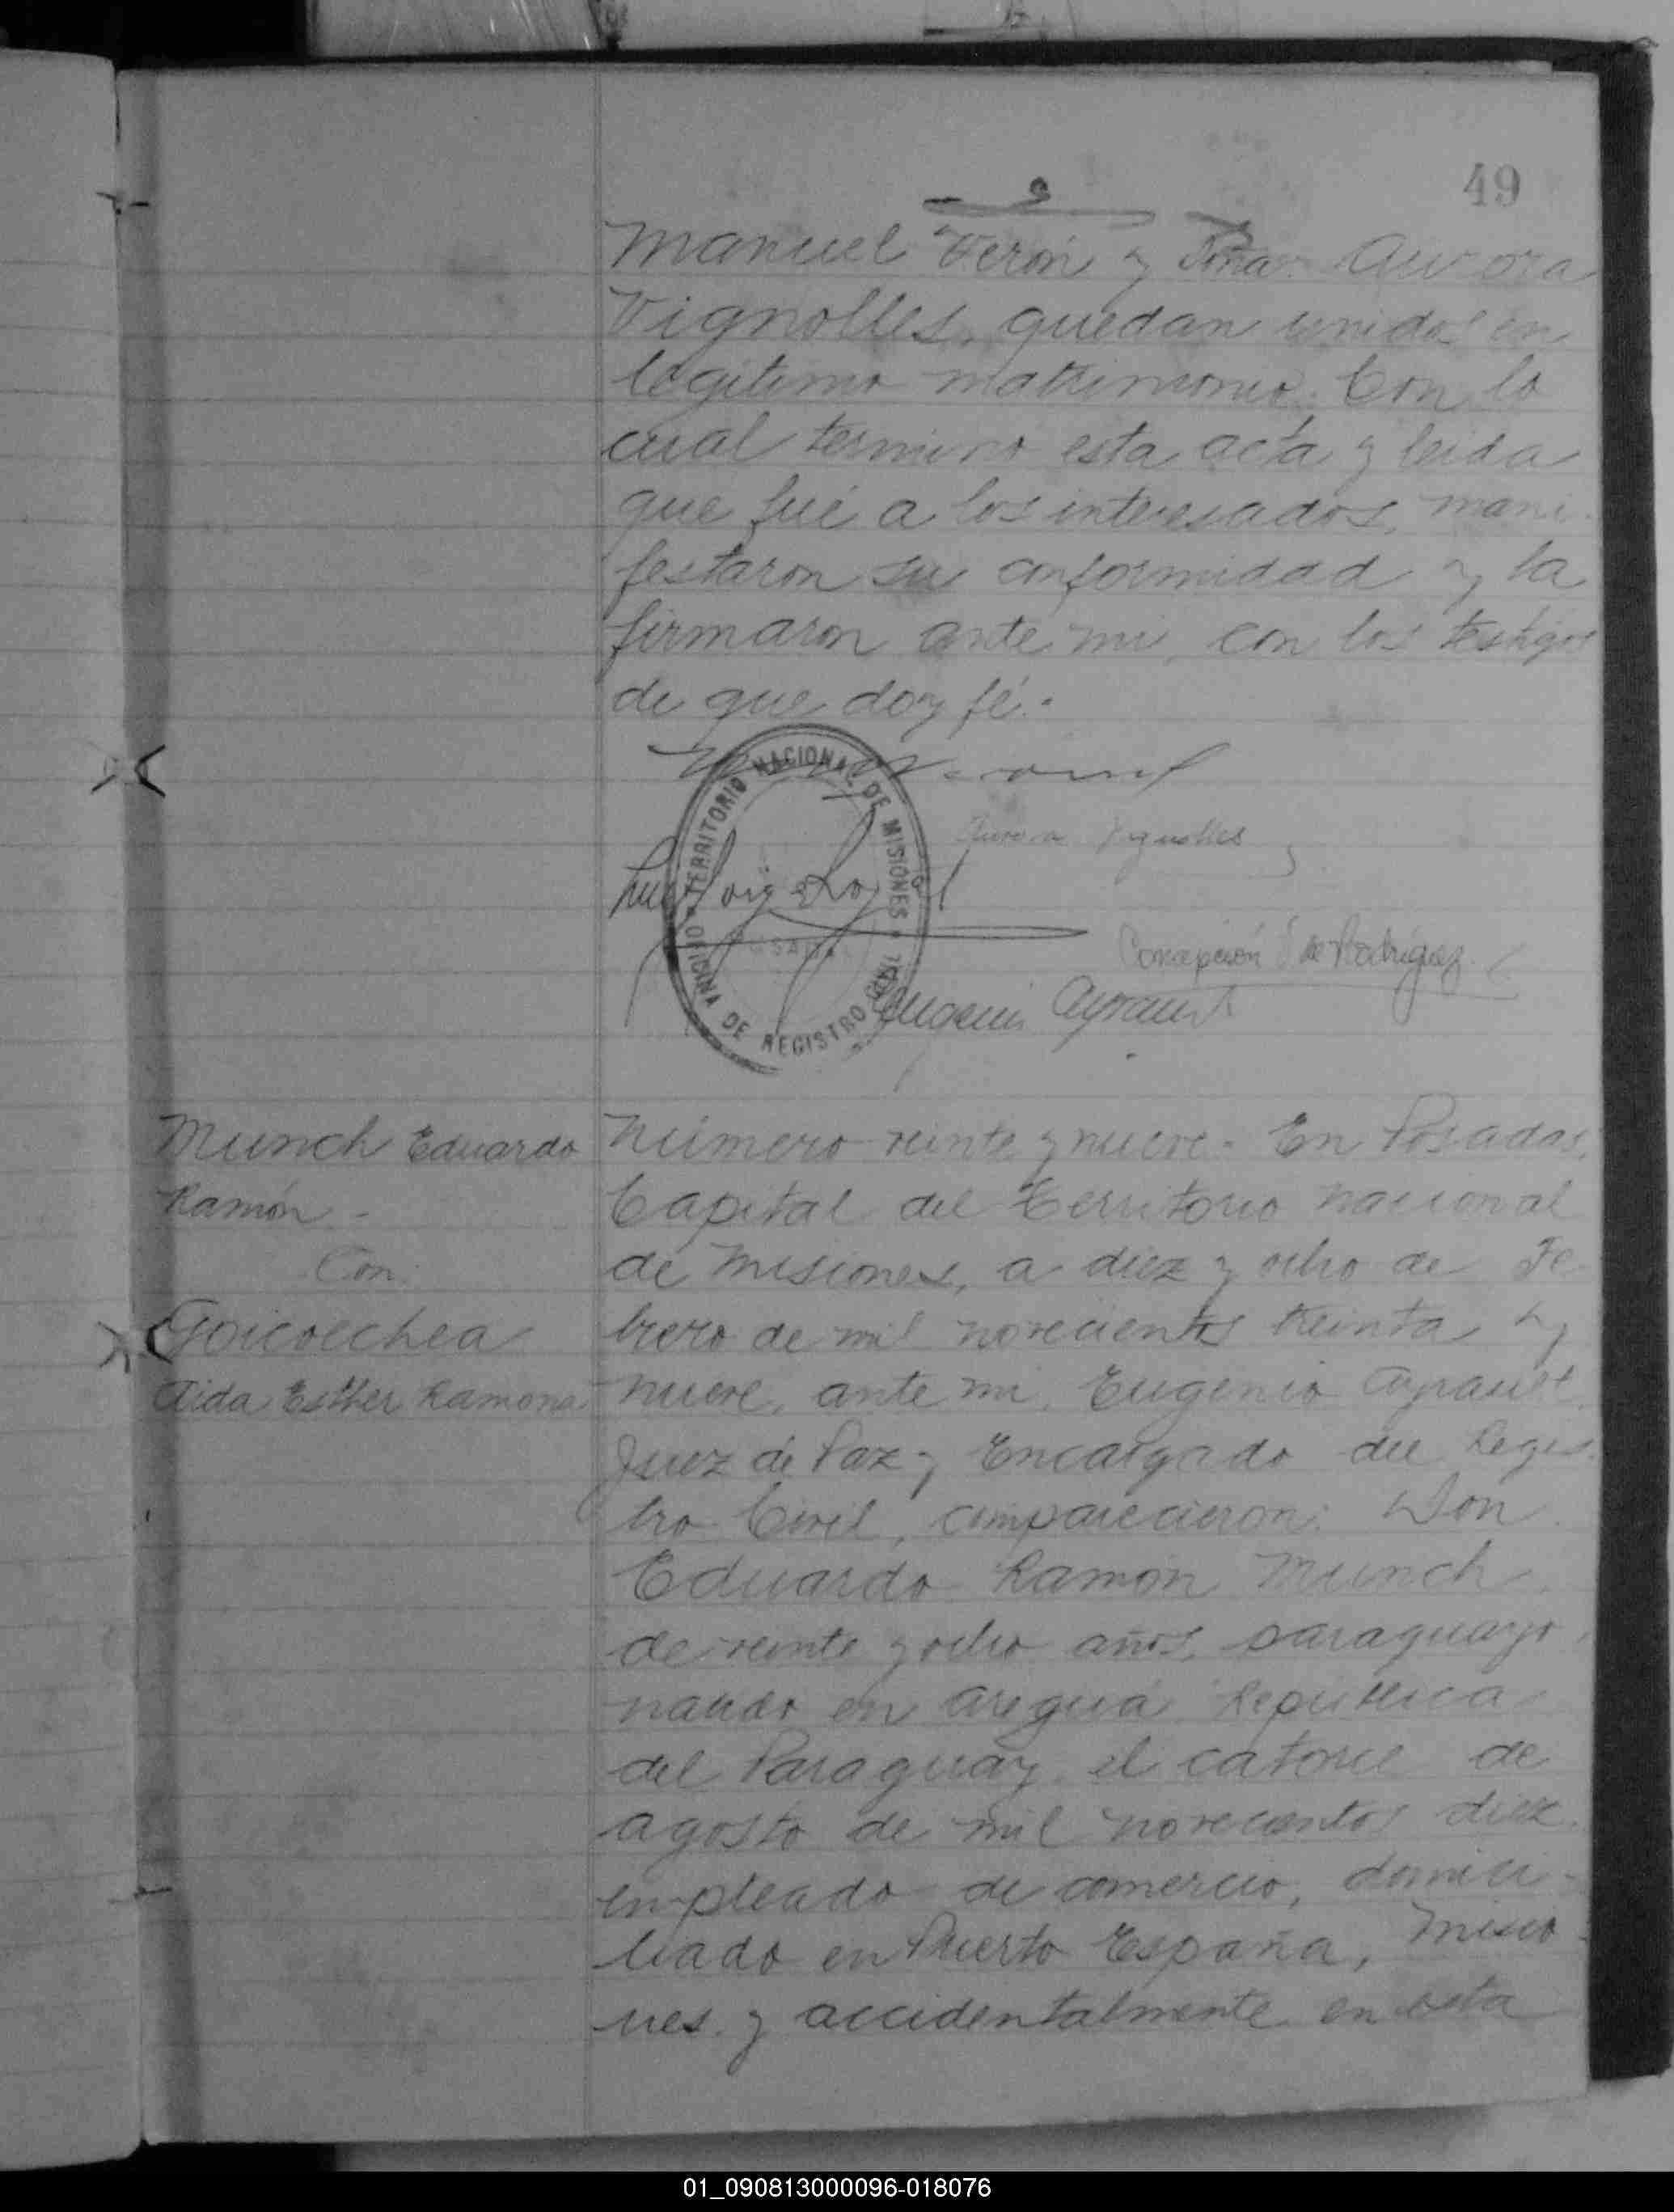 49
Manuel Verón y Doña Aurora
Vignolles, quedan unidos en
legitimo matrimonio. Con lo
cual termino esta acta y leida
que fué a los interesados, mani-
festaron su conformidad y la
firmaron ante mi, con los testigos
de que doy fé.-
TERRITORIO NACIONAL DE MISIONES
OFICINA DE REGISTRO CIVIL
POSADAS
Aurora Vignolles
Concepción S de Rodriguez
Eugenio Ayrault
Munch Eduardo
Ramón -
Con
Goicoechea
Aida Esther Ramona.
Número veinte y nueve - En Posadas,
Capital del Territorio Nacional
de Misiones, a diez y ocho de Fe-
brero de mil novecientos treinta y
nueve, ante mi, Eugenio Ayrault,
Juez de Paz y Encargado del Regis-
tro Civil, comparecieron: Don
Eduardo Ramón Munch,
de veinte y ocho años, paraguayo,
nacido en Areguá República
del Paraguay, el catorce de
agosto de mil novecientos diez,
empleado de comercio, domici-
liado en Puerto España, Misio-
nes y accidentalmente en esta
01_090813000096-018076